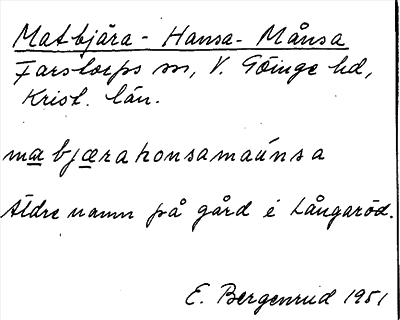 Matbjära - Hansa - Månsa
Farstorps sn, V. Göinge hd,
Krist. län.
mabjæra honsamaúnsa
Äldre namn på gård i Långaröd.
E. Bergenrud 1951